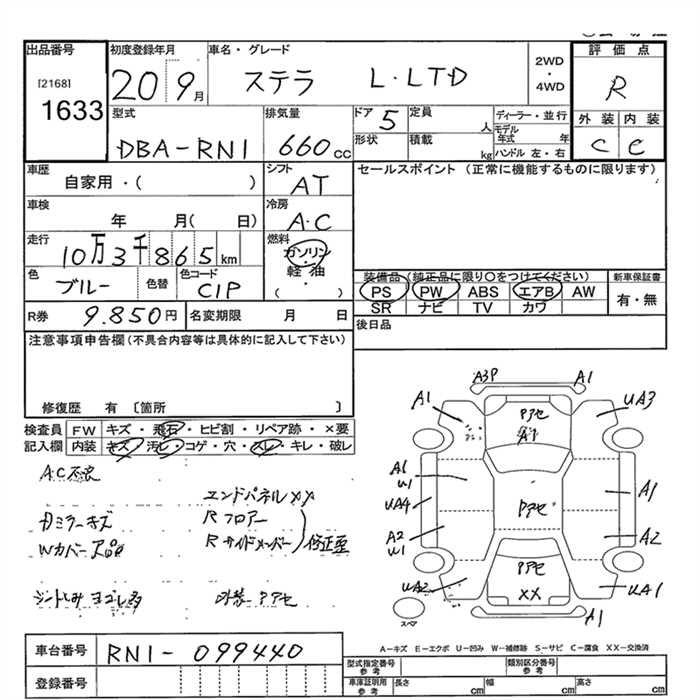 出品番号 初度登録年月 車名・グレード
[2168]
1633
20 9月 ステラ L・LTD
2WD
・
4WD
評価点
R
外装 内装
C C
型式 排気量 ドア 5 定員 人
DBA-RN1 660cc
形状 積載 kg
ディーラー・並行
モデル年式 年
ハンドル 左・右
車歴 シフト
自家用・( ) AT
セールスポイント (正常に機能するものに限ります)
車検 冷房
年 月( 日) A・C
走行 燃料
10万3千865km ガソリン
・
軽油
・
( )
色 色替 色コード
ブルー C1P
装備品 (純正品に限り○をつけてください)
PS PW ABS エアB AW
SR ナビ TV カワ
新車保証書
有・無
R券 9.850円 名変期限 月 日
後日品
注意事項申告欄(不具合内容等は具体的に記入して下さい)
修復歴 有 〔箇所 〕
検査員 FW キズ・飛石・ヒビ割・リペア跡・×要
記入欄 内装 キズ・汚レ・コゲ・穴・スレ・キレ・破レ
A.C不良
エンドパネルXX
Rフロアー
Rサイドメンバー
修正歪
シートしみ ヨゴレ多
外装 Pアセ
A3P A1
A1 Pアセ UA3
A1
A1
U1
UA4
A2
U1
Pアセ
A1
A2
UA2 Pアセ
XX
UA1
A1
スペア
A-キズ E-エクボ U-凹み W-補修跡 S-サビ C-腐食 XX-交換済
車台番号 RN1-099440
登録番号
型式指定番号
参考
類別区分番号
参考
車庫証明用
参考
長さ cm 幅 cm 高さ cm